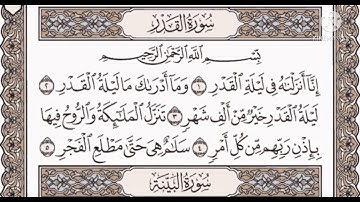 سُورَةُ القَدْرِ
بِسْمِ اللَّهِ الرَّحْمَٰنِ الرَّحِيمِ
إِنَّا أَنزَلْنَٰهُ فِي لَيْلَةِ ٱلْقَدْرِ ١ وَمَآ أَدْرَىٰكَ مَا لَيْلَةُ ٱلْقَدْرِ ٢
لَيْلَةُ ٱلْقَدْرِ خَيْرٌ مِّنْ أَلْفِ شَهْرٍ ٣ تَنَزَّلُ ٱلْمَلَٰٓئِكَةُ وَٱلرُّوحُ فِيهَا
بِإِذْنِ رَبِّهِم مِّن كُلِّ أَمْرٍ ٤ سَلَٰمٌ هِيَ حَتَّىٰ مَطْلَعِ ٱلْفَجْرِ ٥
سُورَةُ البَيِّنَةِ